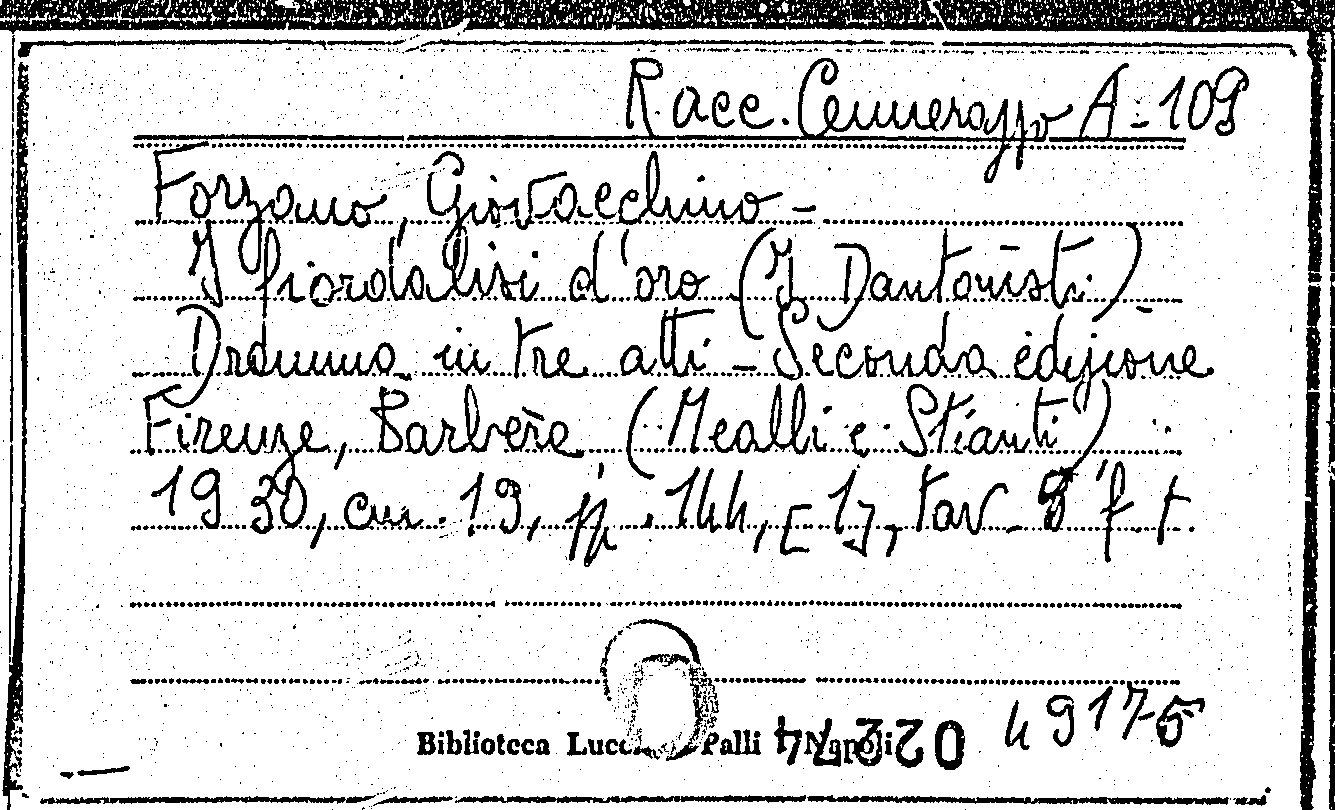 Racc. Cennerazzo A-109
Forzano, Giovacchino -
I fiordalisi d'oro (I Dantonisti) -
Dramma in tre atti - Seconda edizione
Firenze, Barbèra (Mealli e Stianti)
1930, cm. 19, pp. 144, [1], tav. 8 f. t.
49175
Biblioteca Palli Napoli 022374